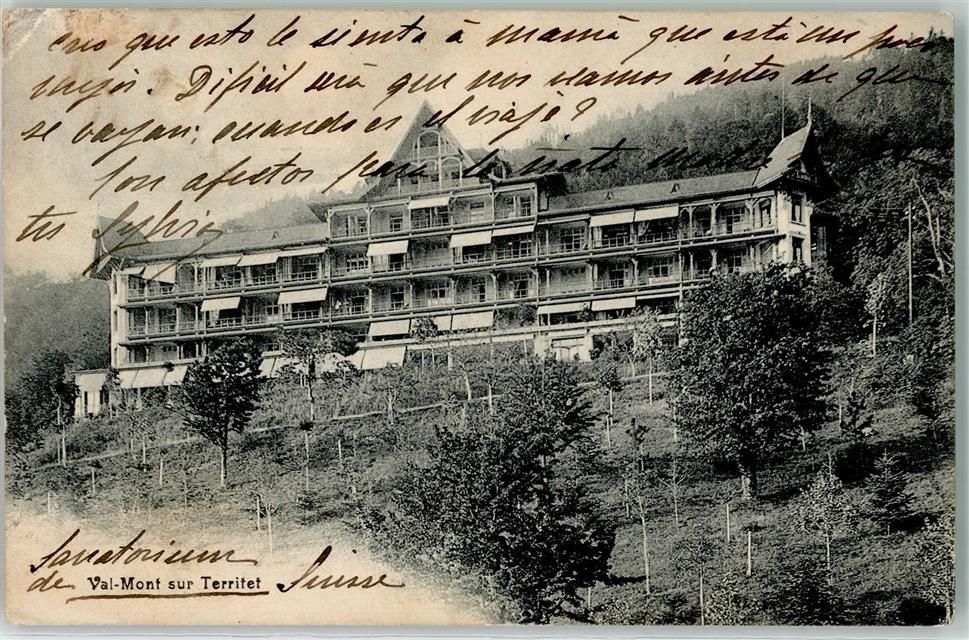 creo que esto le sienta á mamá que está un poco
mejor. Dificil será que nos veamos ántes de que
se vayan; cuando es el viaje?
Con afectos para
tus
Sylvia
Sanatorium
de Val-Mont sur Territet Suisse